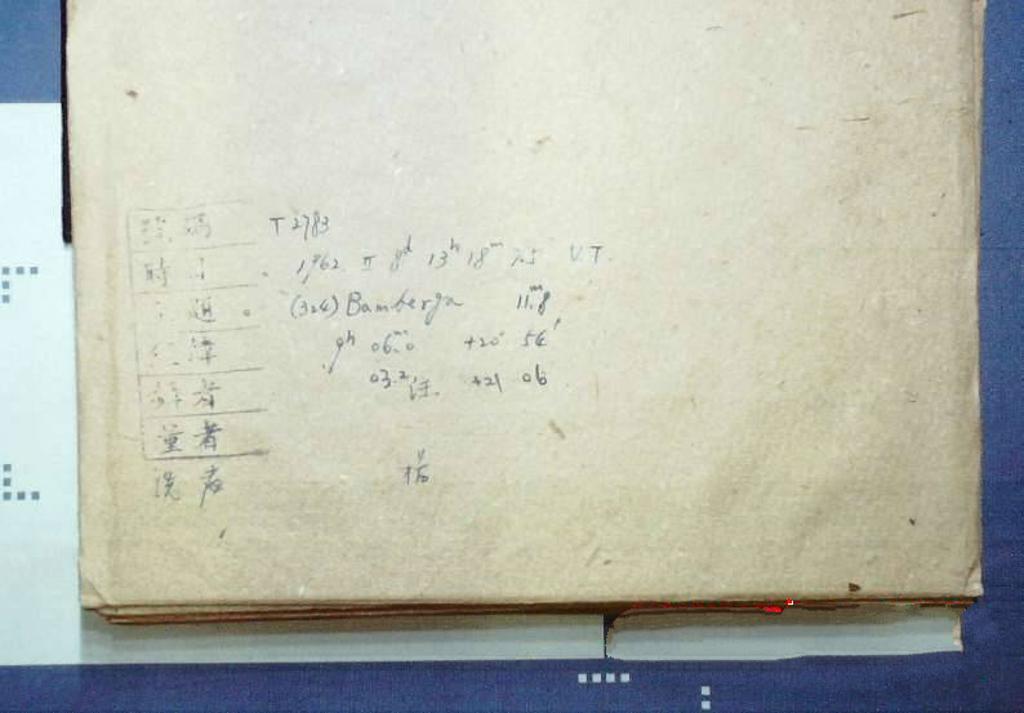 號碼 T 2783
時 1962 II 8d 13h 18m U.T.
題 (324) Bamberga 11.m8
9h 06m.0 +20° 54'
者 03.2 +21 06
量者
洗者